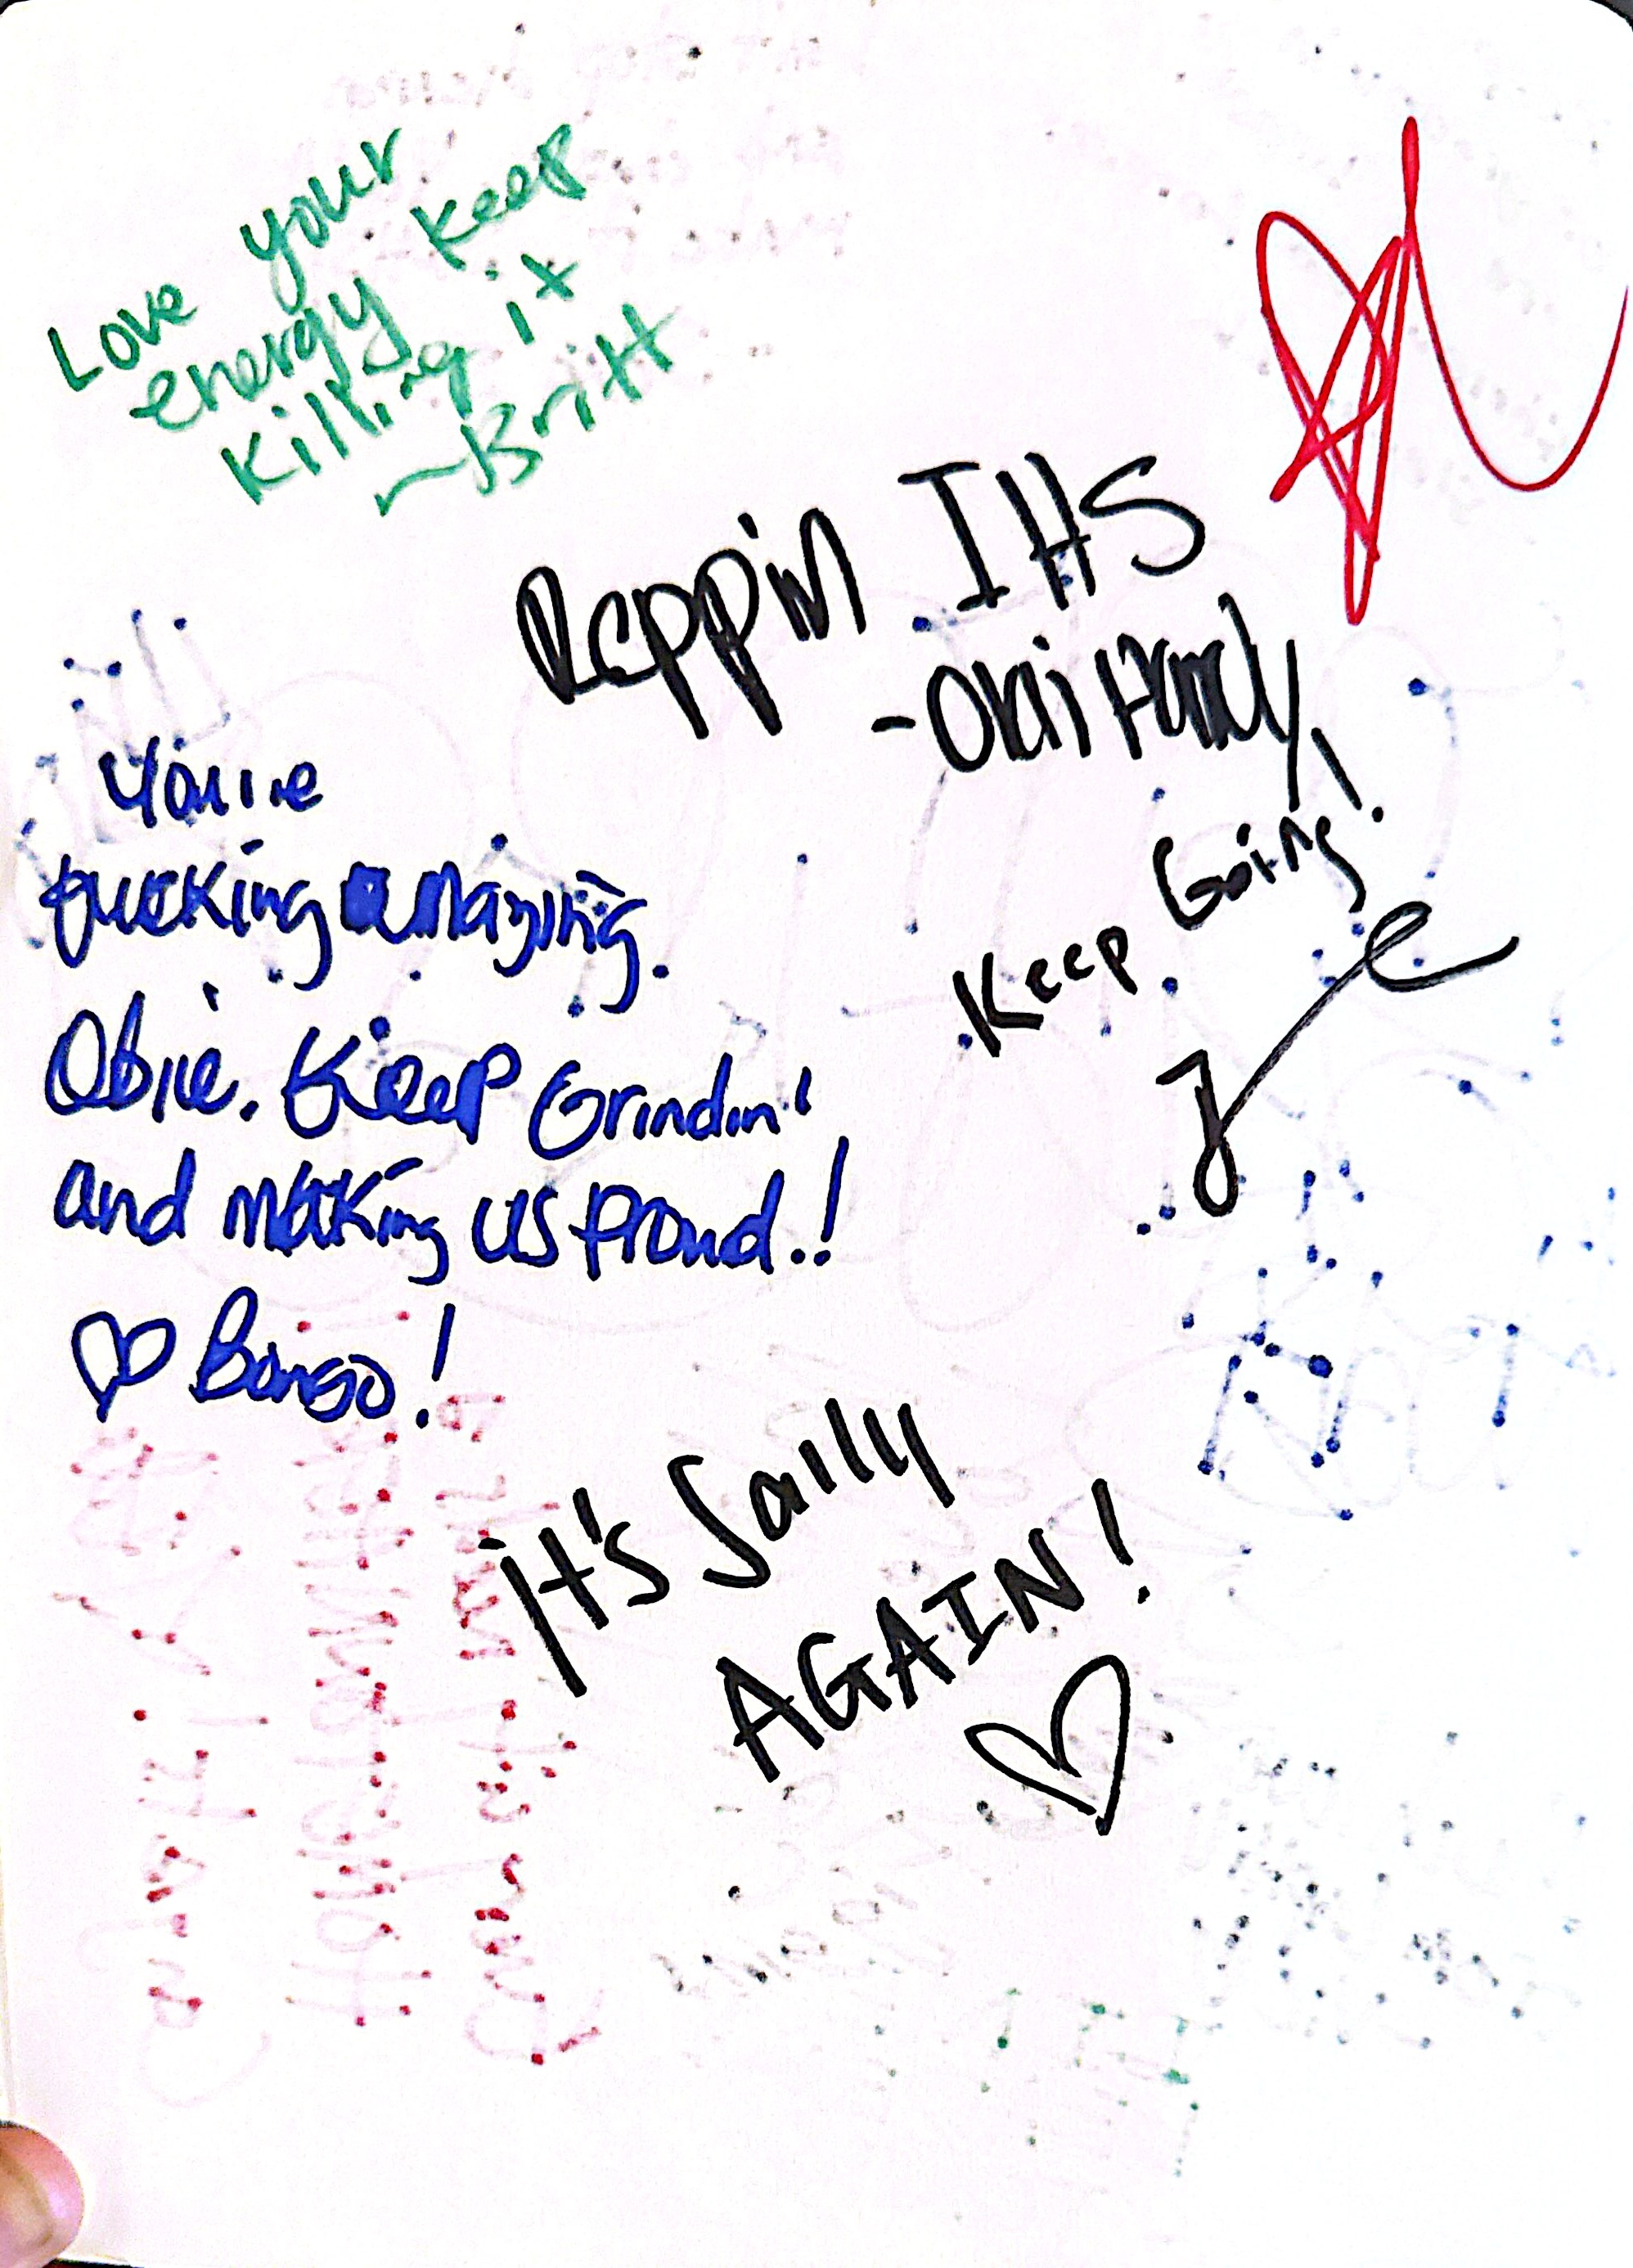 Love your
energy keep
killing it
~Britt
Reppin IHS
Keep Going!
You're
fucking amazing.
Obiie. Keep Grindin'
and making us proud.!
♡ Bongo!
it's Sally
AGAIN!
♡